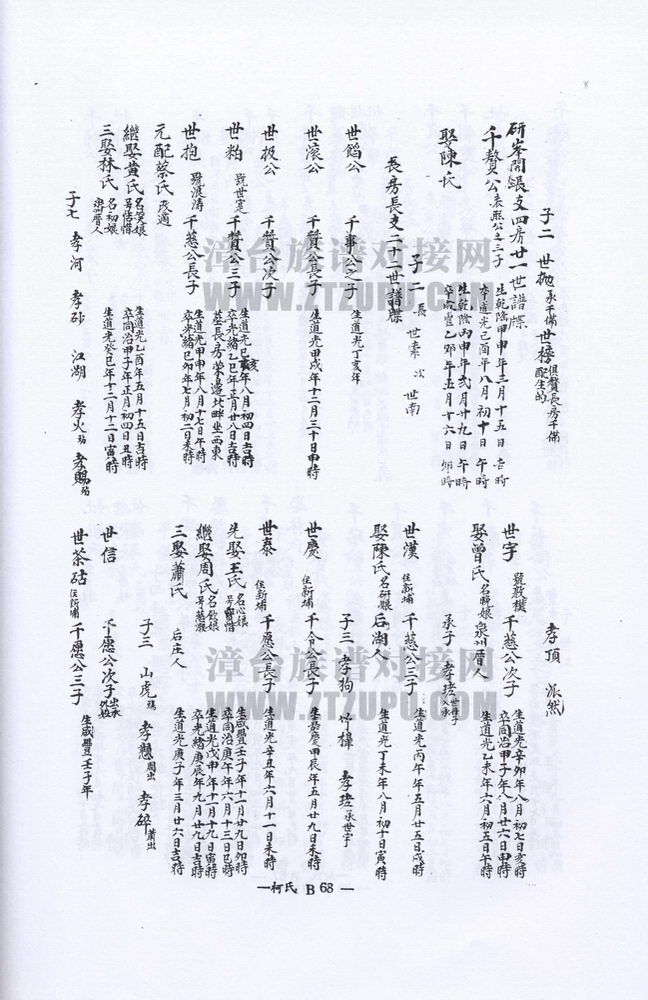 子二 世抛承千備 世榜俱贊長房千備配生的
研岑開張支四房廿一世譜牒
千贊公春熙公之三子 生乾隆甲申年三月十五日吉時 卒道光己酉年八月初十日午時
娶陳氏 生乾隆丙申年弍月廿九日午時 卒咸豐乙卯年五月十六日卯時
子二 長世素 次世南
長房長支二十二世譜牒
世餡公 千事公之子 生道光丁亥年
世滾公 千贊公長子 生道光甲戌年十二月三十日申時
世扱公 千贊公次子
世粕 號世寔 千贊公三子 生道光己亥年八月初四日吉時 卒光緒乙巳年正月廿八日吉時 葬長房菜邊北畔坐西東
世抱 號浪濤 千慈公長子 生道光甲申年八月十七日午時 卒光緒己卯年七月初二日未時
元配蔡氏
繼娶黃氏名笑娘 生道光乙酉年五月十五日吉時 卒同治甲子年正月初四日丑時
三娶林氏名初娘 晋人 生道光癸巳年十二月十二日寅時
子七 孝河 孝砂 江湖 孝火殤 孝賜殤
孝頂 派然
世宇 號敦樸 千慈公次子 生道光辛卯年八月初七日亥時 卒同治甲子年八月廿六日申時
娶曾氏名睞娘 泉州晋人 生道光乙未年六月初五日午時
承子 孝琺
世漢 住新埔 千慈公三子 生道光丙午年五月廿五日戌時
娶陳氏名研娘 后湖人 生道光丁未年八月初十日寅時
子三 孝狗 孝樟 孝琺承世宇
世慶 住新埔 千令公長子 生嘉慶甲辰年五月廿九日未時
世泰 住新埔 千愿公長子 生道光辛丑年六月十一日未時
先娶王氏名心娘 生咸豐壬子年十一月廿九日卯時 卒同治庚午年六月十三日巳時
繼娶周氏名飲娘 生道光戊申年十一月十九日寅時 卒光緒庚辰年九月廿九日吉時
三娶蕭氏 后庄人 生道光庚子年三月廿六日吉時
子三 山虎殤 孝戇周出 孝碎蕭出
世信 千愿公次子
世茶砧 住新埔 千愿公三子 生咸豐壬子年
漳台族谱对接网
WWW.ZTZUPU.COM
漳台族谱对接网
WWW.ZTZUPU.COM
—柯氏 B 68 —